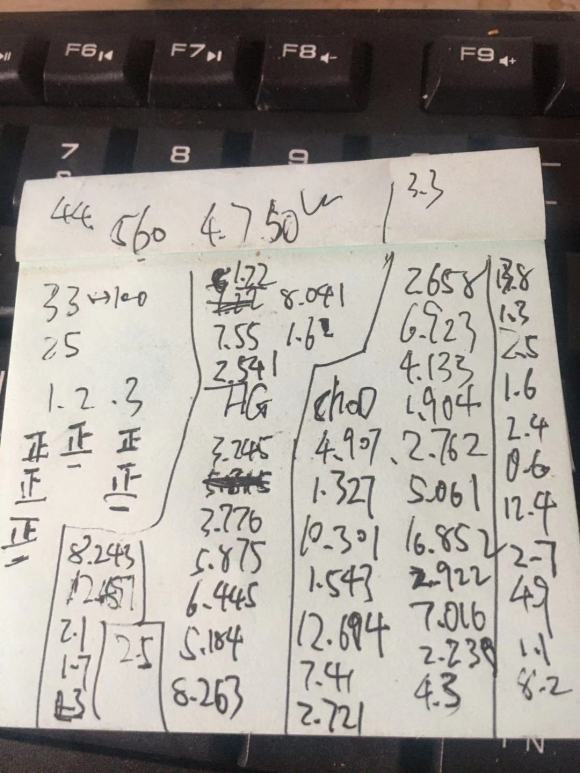 F6
F7
F8
F9
7
8
9
44.
560
4.7.50
3.3
33↔100
25
1.2.3
正 正 正
正 正
正
8.243
2.1
1.7
25
1.22
8.041
7.55
1.62
2.541
HG
3.245
3.776
5.875
6.445
5.184
8.263
choD
4.907
1.327
10.301
1.543
12.694
7.41
2.721
2.658
6.923
4.133
1.904
2.762
5.061
16.852
2.922
7.016
2.239
4.3
1.3
2.5
1.6
2.4
0.6
12.4
2.7
49
1.1
8.2
N